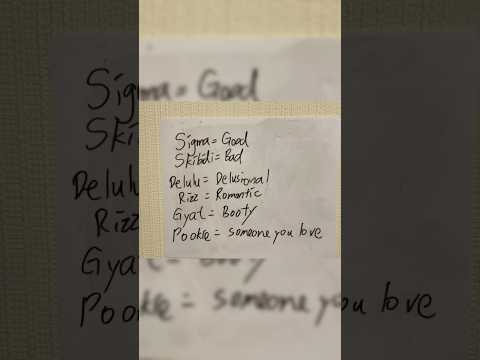 Sigma = Good
Skibidi = Bad
Delulu = Delusional
Rizz = Romantic
Gyat = Booty
Pookie = someone you love